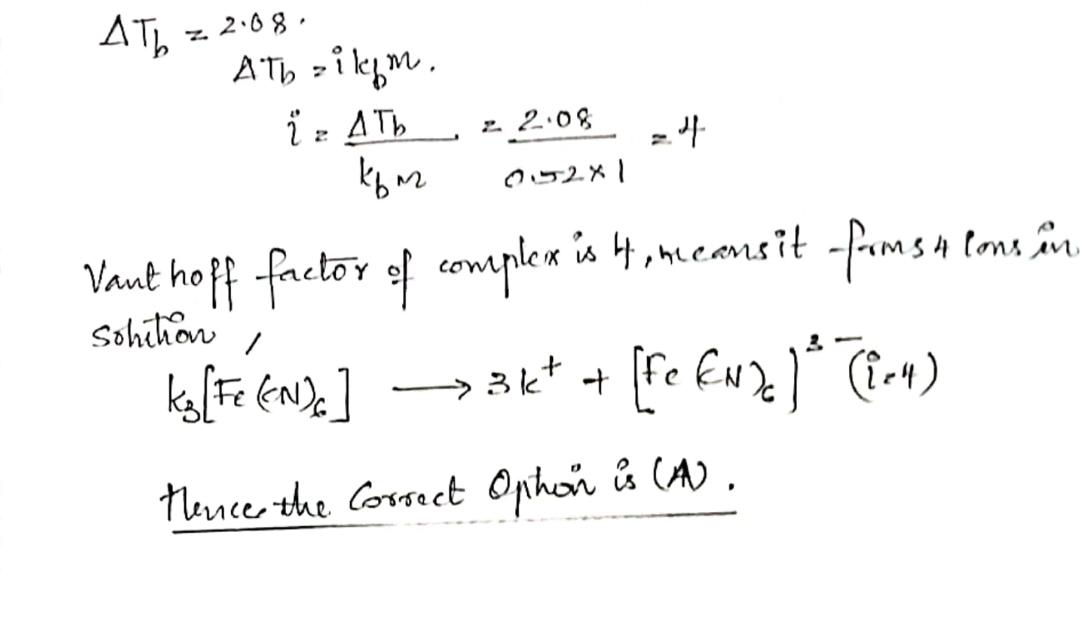 ΔTb = 2.08.
ΔTb = i kbm.
i = ΔTb / kbm = 2.08 / 0.52×1 = 4
Vant hoff factor of complex is 4, means it forms 4 ions in
solution,
k3[Fe(CN)6] ⟶ 3k+ + [Fe(CN)6]3− (i=4)
Hence the Correct Option is (A).